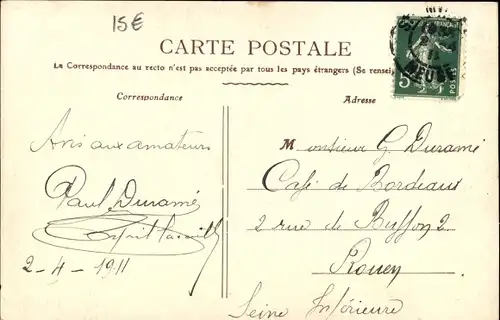 15€
CARTE POSTALE
La Correspondance au recto n'est pas acceptée par tous les pays étrangers (Se rensei
Correspondance
Adresse
5
POSTES
MEUSE
Avis aux amateurs
Paul Duramé
2-4-1911
Monsieur G. Duramé
Café de Bordeaux
2 rue de Buffon 2
Rouen
Seine Inférieure